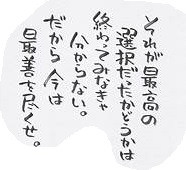 それが最高の
選択だったかどうかは
終わってみなきゃ
分からない。
だから今は
最善を尽くせ。